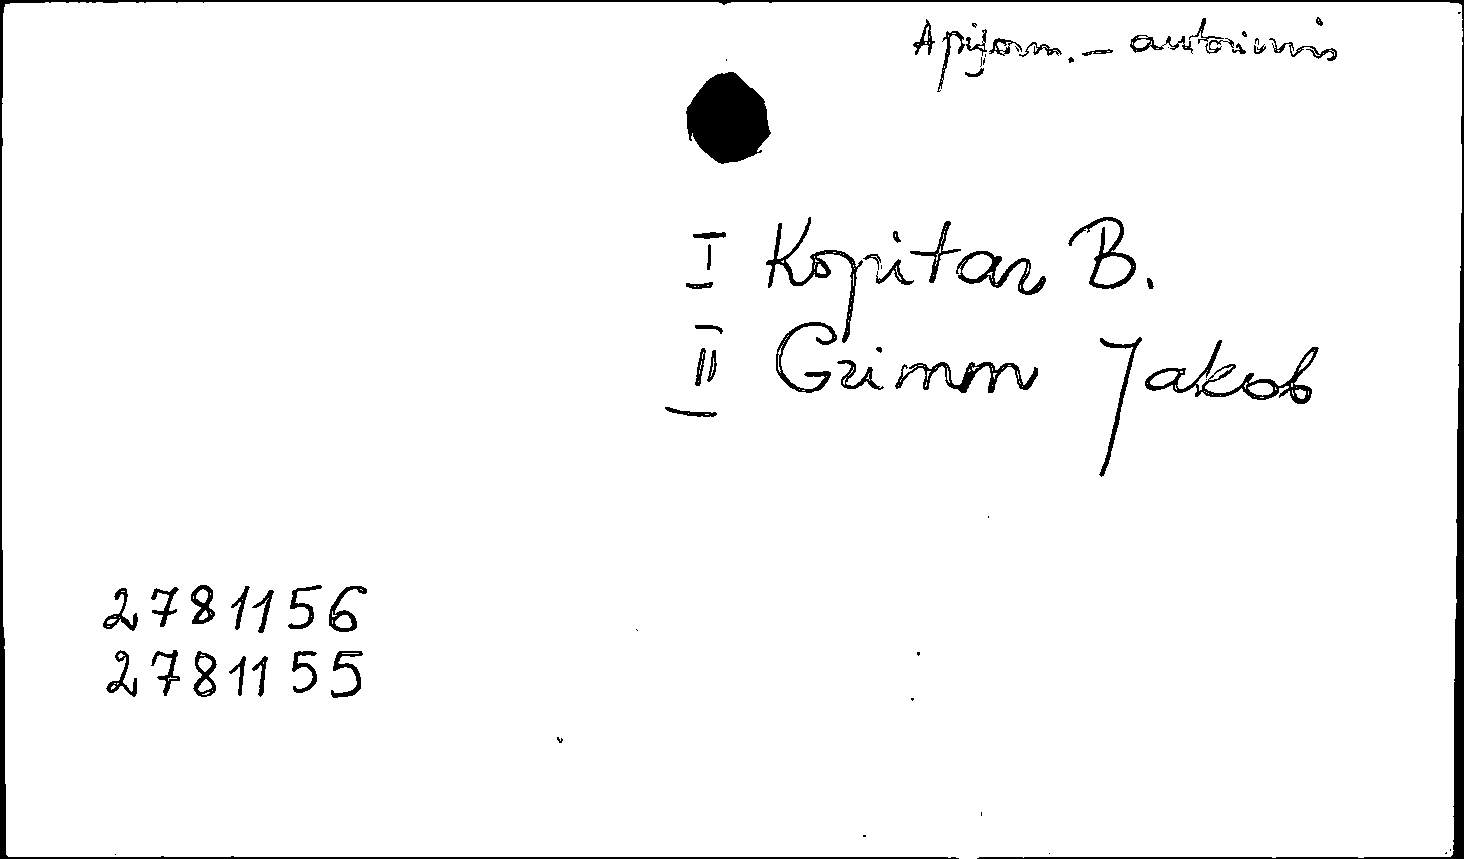 Apiform. – autorinis
I Kopitar B.
II Grimm Jakob
2781156
2781155